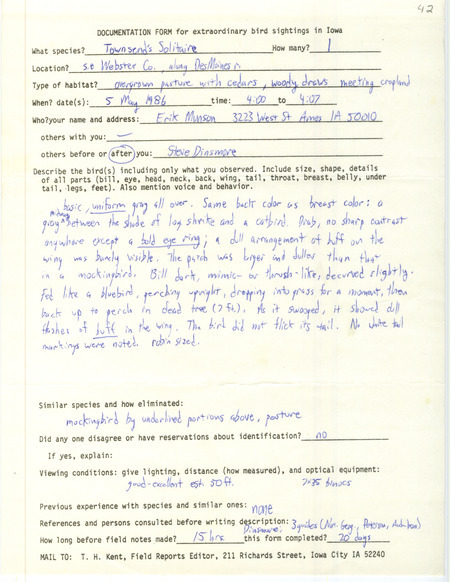 42
DOCUMENTATION FORM for extraordinary bird sightings in Iowa
What species? Townsend's Solitaire How many? 1
Location? se Webster Co., along Des Moines r.
Type of habitat? overgrown pasture with cedars, woody draws meeting cropland
When? date(s): 5 May 1986 time: 4:00 to 4:07
Who?your name and address: Erik Munson 3223 West St Ames IA 50010
others with you: —
others before or after you: Steve Dinsmore
Describe the bird(s) including only what you observed. Include size, shape, details
of all parts (bill, eye, head, neck, back, wing, tail, throat, breast, belly, under
tail, legs, feet). Also mention voice and behavior.
basic, uniform gray all over. Same back color as breast color: a
gray midway between the shade of log shrike and a catbird. Drab, no sharp contrast
anywhere except a bold eye ring; a dull arrangement of buff on the
wing was barely visible. The patch was larger and duller than that
in a mockingbird. Bill dark, mimic- or thrush-like, decurved slightly.
Fed like a bluebird, perching upright, dropping into grass for a moment, then
back up to perch in dead tree (7 ft.). As it swooped, it showed dull
flashes of buff in the wing. The bird did not flick its tail. No white tail
markings were noted. robin sized.
Similar species and how eliminated:
mockingbird by underlined portions above, posture
Did any one disagree or have reservations about identification? no
If yes, explain:
Viewing conditions: give lighting, distance (how measured), and optical equipment:
good-excellent est. 50 ft. 7x35 binocs
Previous experience with species and similar ones: none
References and persons consulted before writing description: Dinsmore, 3 guides (Nat. Geog., Peterson, Audubon)
How long before field notes made? 15 hrs this form completed? 20 days
MAIL TO: T. H. Kent, Field Reports Editor, 211 Richards Street, Iowa City IA 52240